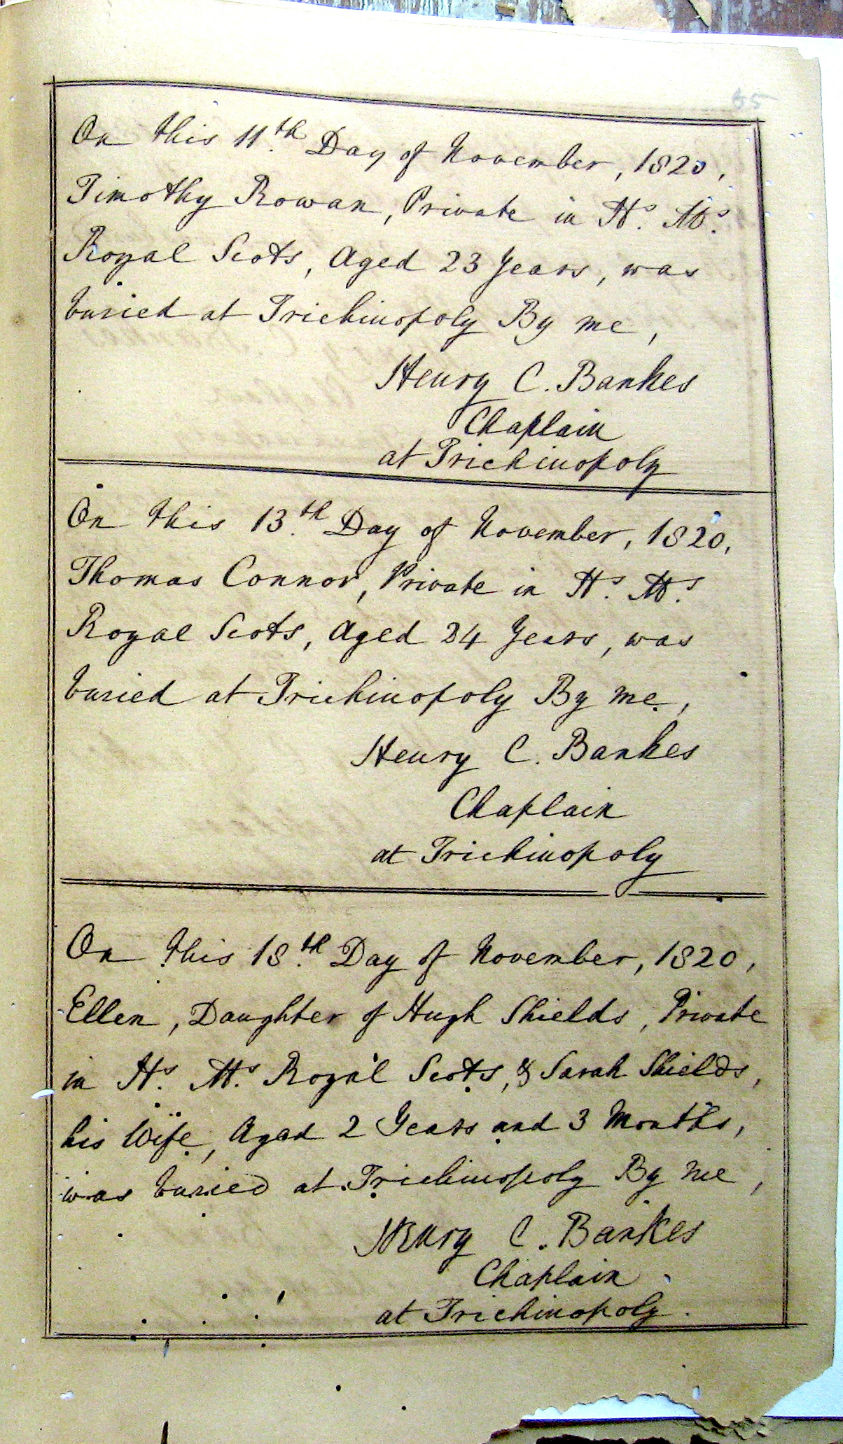 85
On this 11.th Day of November, 1820,
Timothy Rowan, Private in H.s M.s
Royal Scots, Aged 23 Years, was
buried at Trichinopoly By me,
Henry C. Bankes
Chaplain
at Trichinopoly
On this 13.th Day of November, 1820,
Thomas Connor, Private in H.s M.s
Royal Scots, Aged 24 Years, was
buried at Trichinopoly By me,
Henry C. Bankes
Chaplain
at Trichinopoly
On this 18.th Day of November, 1820,
Ellen, Daughter of Hugh Shields, Private
in H.s M.s Royal Scots, & Sarah Shields,
his Wife, Aged 2 Years and 3 Months,
was buried at Trichinopoly By me,
Henry C. Bankes
Chaplain
at Trichinopoly.